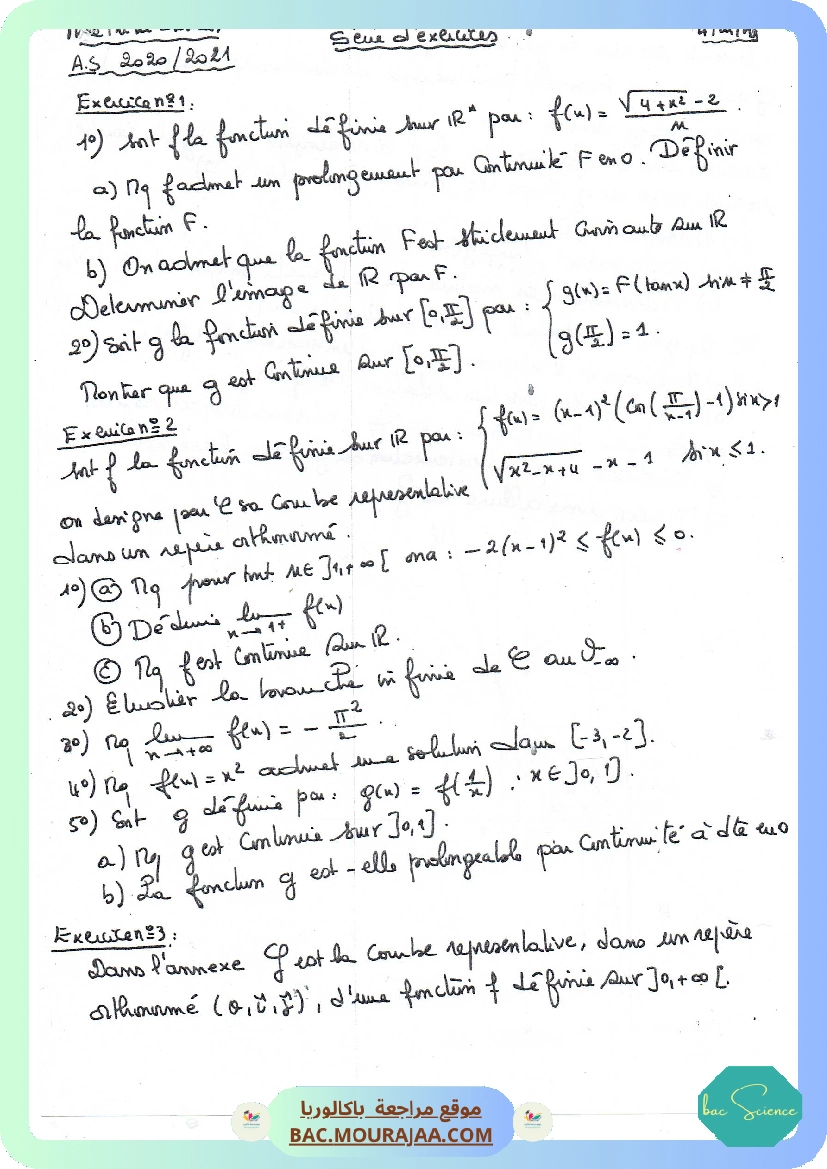 Série d'exercices
A.S 2020/2021
Exercice nº 1:
1º) Soit f la fonction définie sur IR* par : f(x) = (√(4+x²) - 2)/x .
a) Mq f admet un prolongement par Continuité F en 0. Définir
la fonction F.
b) On admet que la fonction F est strictement croissante sur IR
Determiner l'image de IR par F.
2º) Soit g la fonction définie sur [0,π/2] par : { g(x) = F(tanx) si x ≠ π/2
g(π/2) = 1.
Montrer que g est Continue sur [0,π/2].
Exercice nº 2
Soit f la fonction définie sur IR par : { f(x) = (x-1)² (Cos(π/(x-1)) - 1) si x > 1
√(x²-x+4) - x - 1 si x ≤ 1.
on designe par C sa Courbe representative
dans un repère orthonormé.
1º) a) Mq pour tout x ∈ ]1,+∞[ on a : -2(x-1)² ≤ f(x) ≤ 0.
b) Déduire lim x→1+ f(x)
c) Mq f est Continue sur IR.
2º) Etudier la branche infinie de C au V-∞ .
3º) Mq lim x→+∞ f(x) = - π²/2 .
4º) Mq f(x) = x² admet une solution dans [-3,-2].
5º) Soit g définie par : g(x) = f(1/x) ; x ∈ ]0,1].
a) Mq g est Continue sur ]0,1].
b) La fonction g est-elle prolongeable par Continuité à dte en 0
Exercice nº 3:
Dans l'annexe Cf est la Courbe representative, dans un repère
orthonormé (o,i,j), d'une fonction f définie sur ]0,+∞[.
موقع مراجعة باكالوريا
BAC.MOURAJAA.COM
bac Science